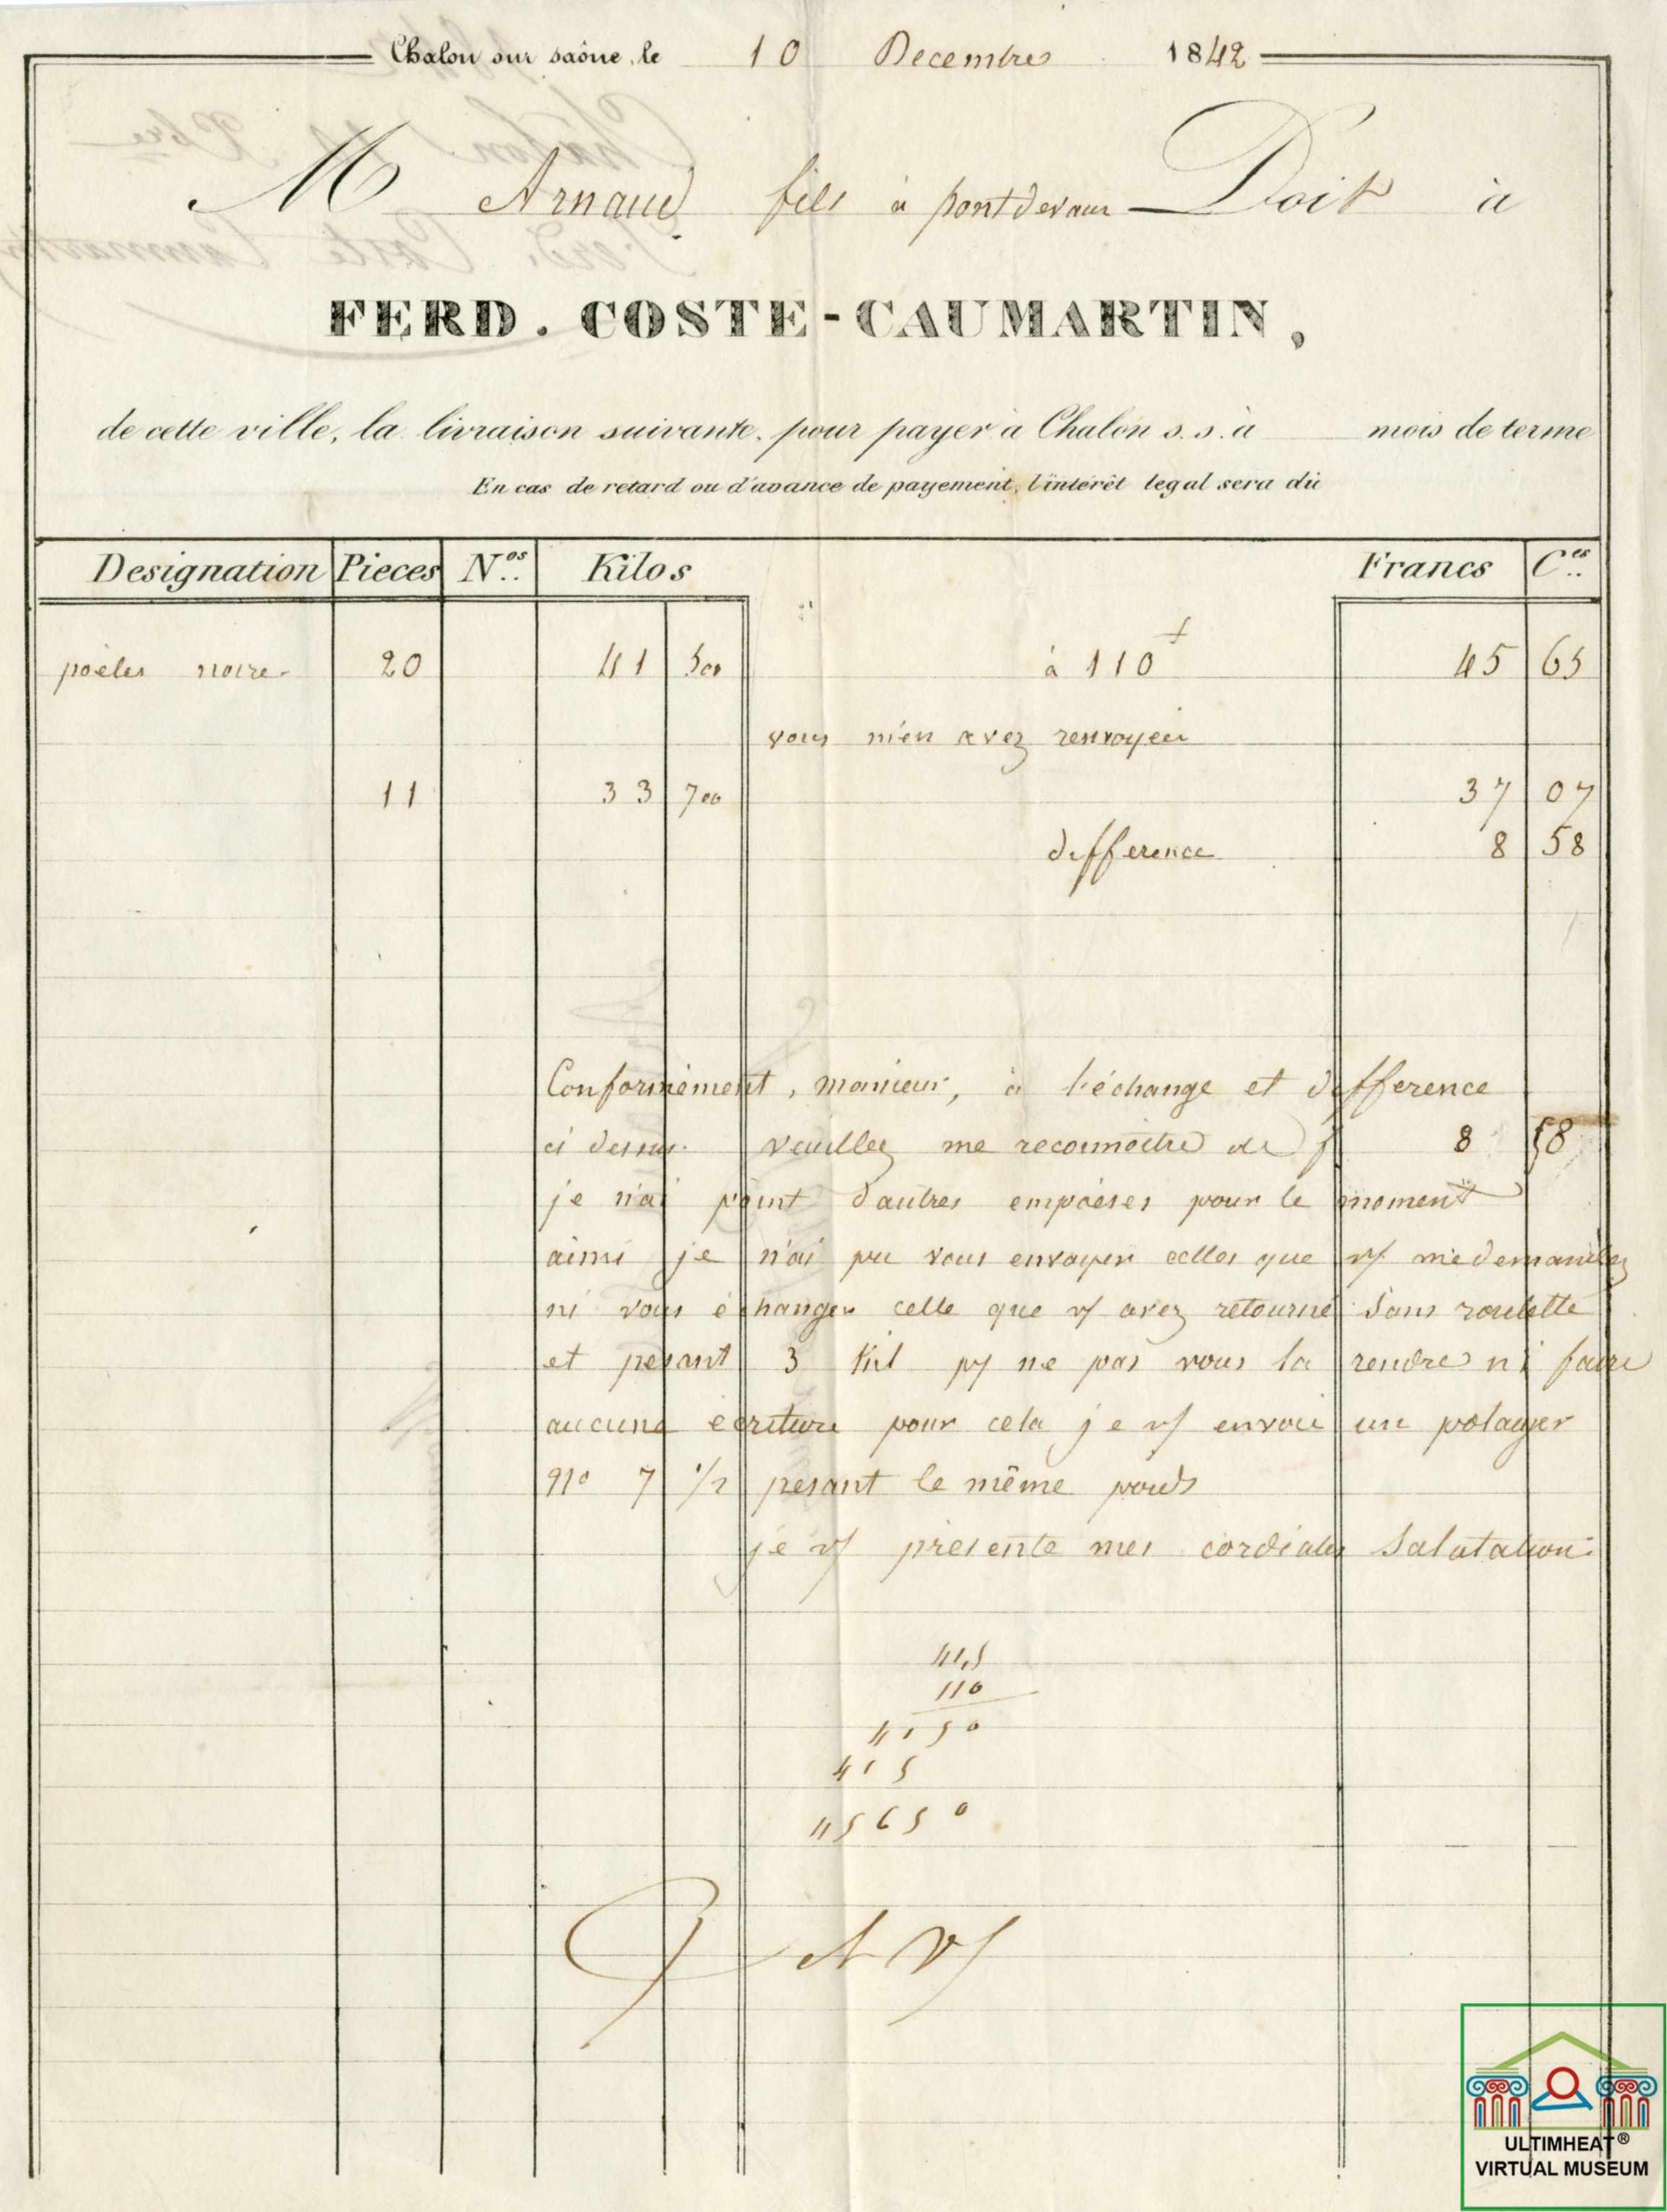 Chalon sur saône, le 10 Decembre 1842
M Arnaud fils à pontdevaux Doit à
FERD. COSTE-CAUMARTIN,
de cette ville, la livraison suivante, pour payer à Chalon s. s. à mois de terme
En cas de retard ou d'avance de payement, l'intérêt legal sera dû
Designation Pieces N.os Kilos Francs C.es
poèles noire 20 41 500 à 110 f 45 65
vous m'en avez renvoyée
11 33 700 37 07
difference 8 58
Conformément, monsieur, à l'échange et difference
ci dessus veuillez me reconnoitre de f 8 58
je n'ai point d'autres pour le moment
ainsi je n'ai pu vous envoyer celles que v/ me demandez
ni vous échanger celle que v/ avez retourné sans roulette
et pesant 3 Kil p/ ne pas vous la rendre ni faire
aucune écriture pour cela je v/ envoie un potager
no 7 1/2 pesant le même poids
je v/ présente mes cordiales Salutation
41,5
110
4150
415
45650
ULTIMHEAT®
VIRTUAL MUSEUM